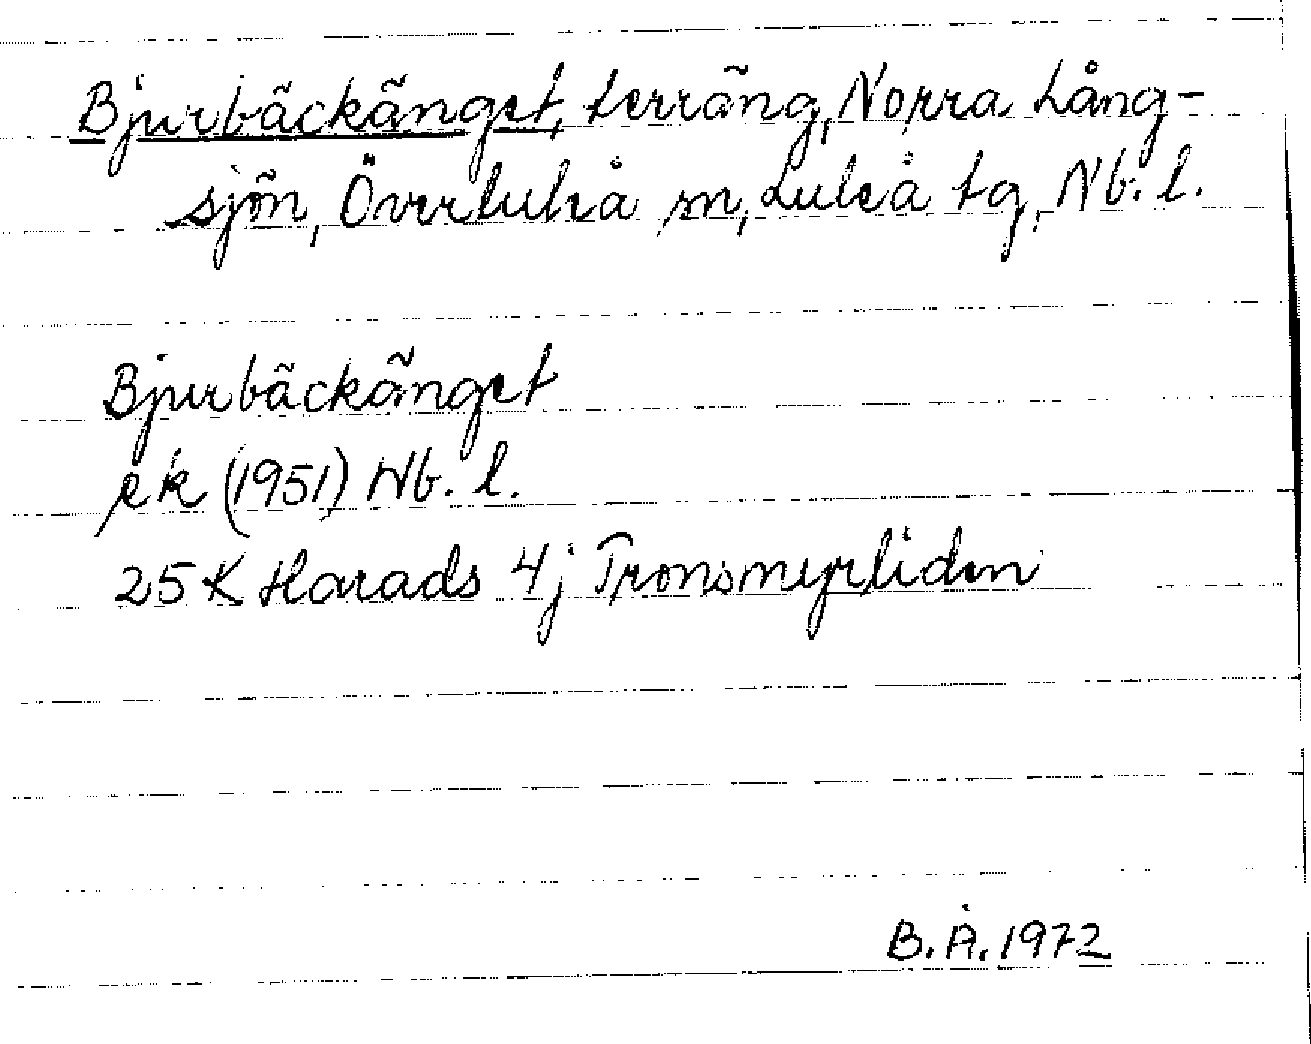 Bjurbäckänget, terräng, Norra Lång-
sjön, Överluleå sn, Luleå tg, Nb. l.
Bjurbäckänget
ek (1951) Nb. l.
25 K Harads 4j Tronsmyrliden
B.Å. 1972